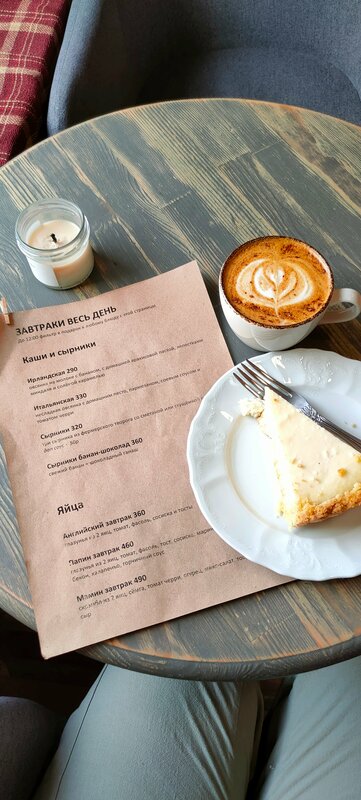 ЗАВТРАКИ ВЕСЬ ДЕНЬ
До 12:00 фильтр в подарок к любому блюду с этой страницы
Каши и сырники
Ирландская 290
овсянка на молоке с бананом, с домашней арахисовой пастой, лепестками
миндаля и солёной карамелью
Итальянская 330
овсянка с домашним песто, пармезаном, соевым соусом и
томатом черри
Сырники 320
три сырника из фермерского творога со сметаной или сгущёнкой
доп соус - 50р
Сырники банан-шоколад 360
свежий банан и шоколадный ганаш
Яйца
Английский завтрак 360
глазунья из 2 яиц, томат, фасоль, сосиска и тосты
Папин завтрак 460
глазунья из 2 яиц, томат, фасоль, тост, сосиска,
бекон, халапеньо, горчичный соус
Мамин завтрак 490
скрэмбл из 2 яиц, сёмга, томат черри, огурец, микс-салат,
сыр